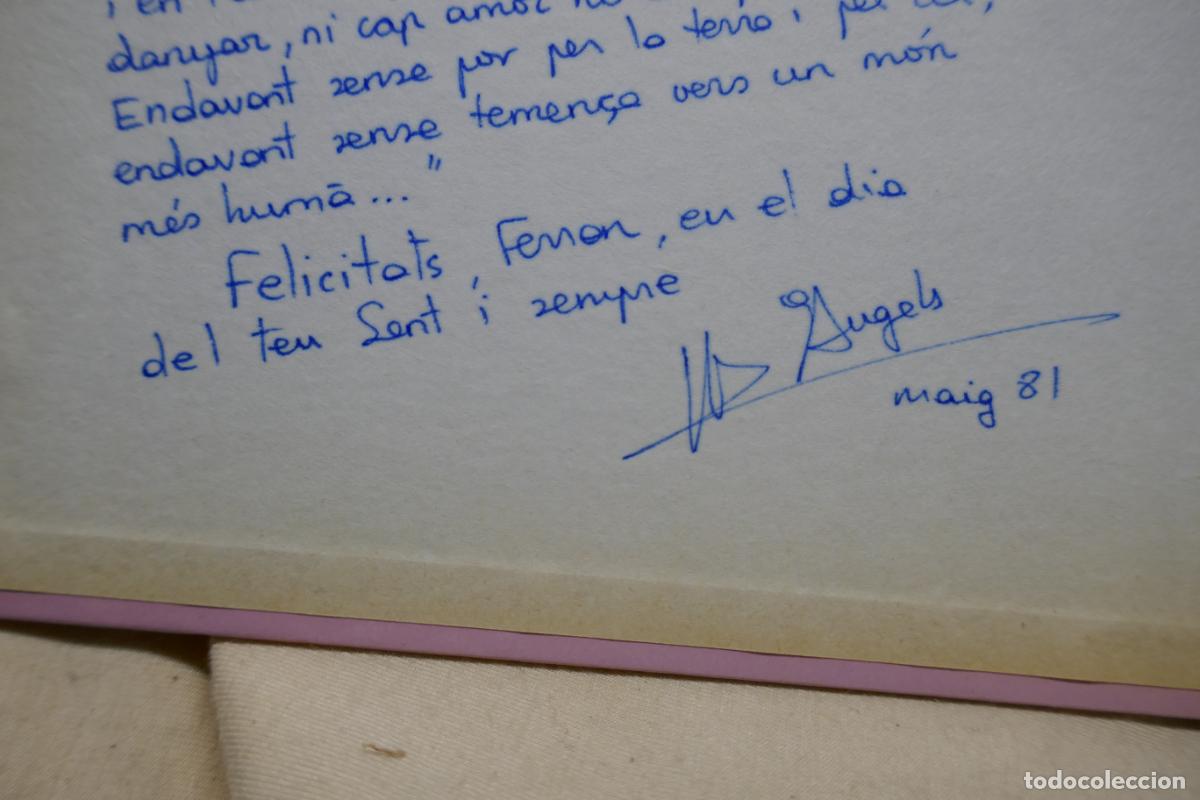 i en
danyar, ni cap amor no
Endavant sense por per la terra i per
endavant sense temença vers un món
més humā..."
Felicitats, Ferran, en el dia
del teu Sant i sempre
Mª Àngels
maig 81
todocoleccion